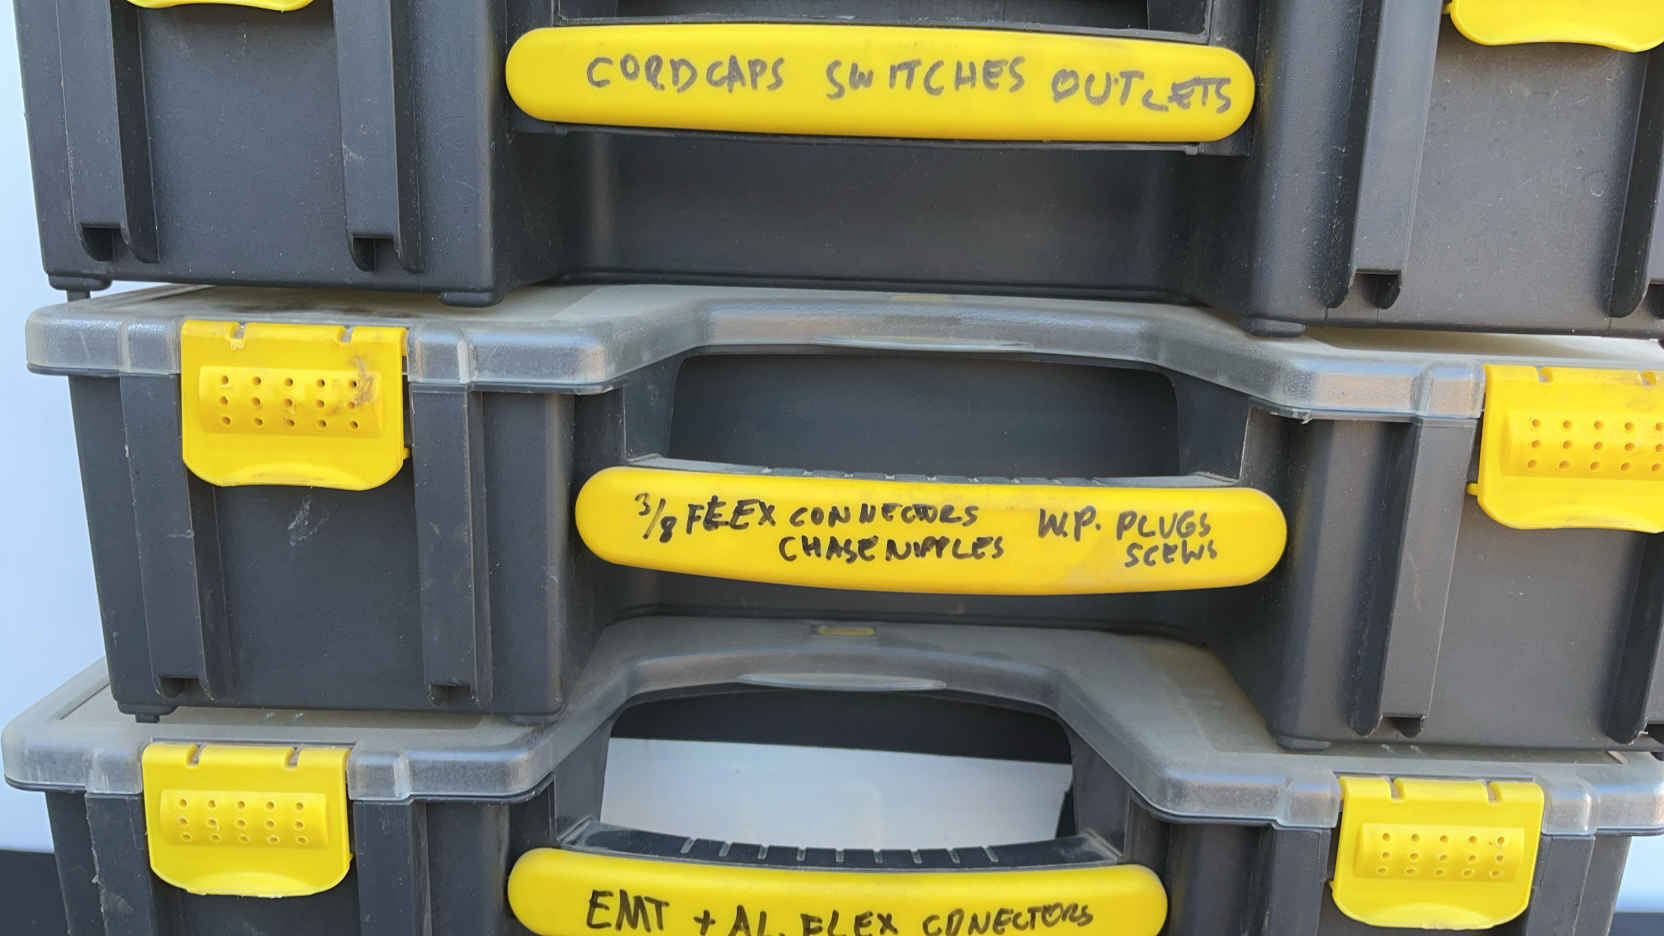 CORDCAPS SWITCHES OUTLETS
3/8 FLEX CONNECTORS W.P. PLUGS
CHASE NIPPLES SCEWS
EMT + AL. FLEX CONECTORS